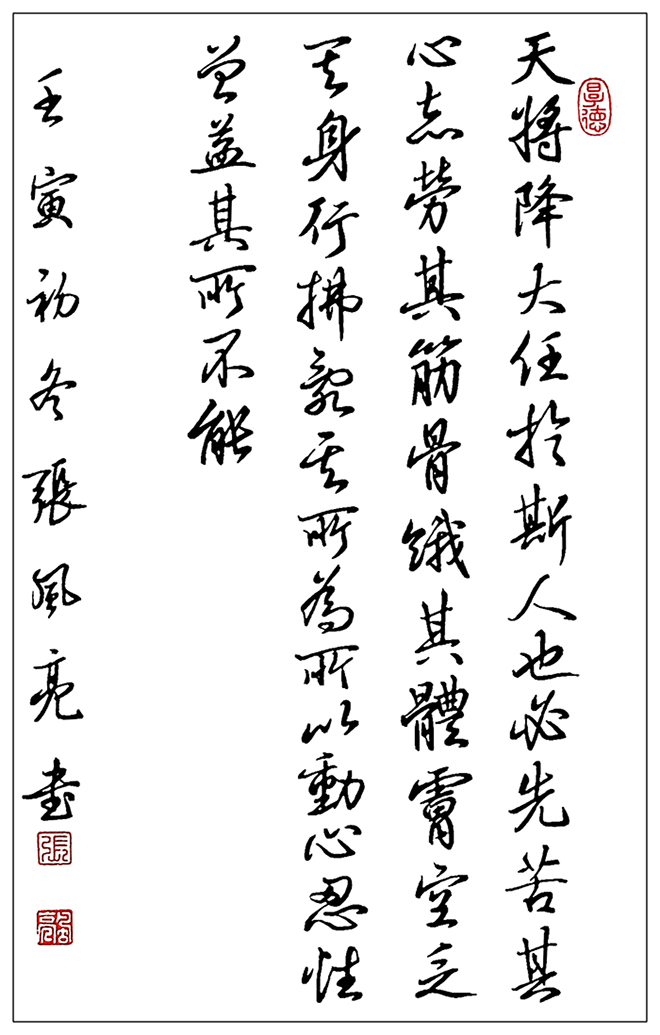 天將降大任於斯人也必先苦其
心志勞其筋骨餓其體膚空乏
其身行拂亂其所為所以動心忍性
曾益其所不能
壬寅初冬張風亮書
厚德
張
風亮